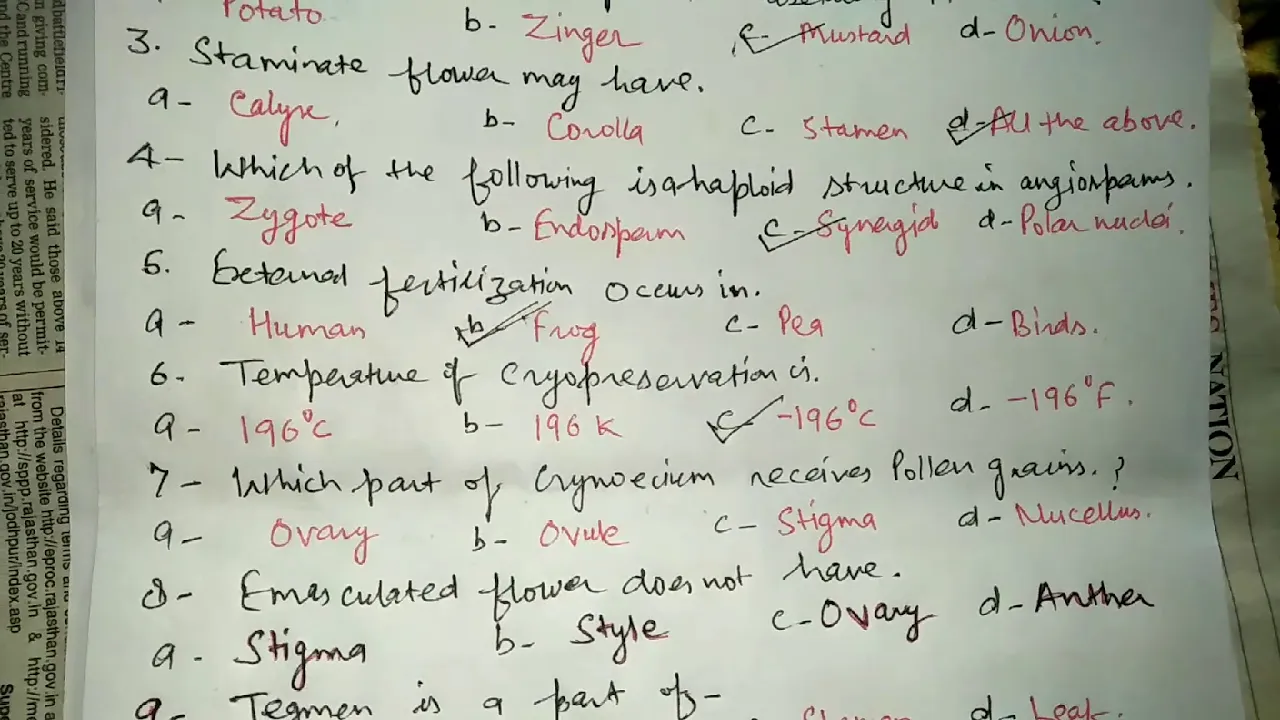 Potato b- Zinger c- Mustard d- Onion.
3. Staminate flower may have.
a- Calyx, b- Corolla c- Stamen d- All the above.
4- Which of the following is a haploid structure in angiosperms.
a- Zygote b- Endosperm c- Synergid d- Polar nuclei.
5. External fertilization occurs in.
a- Human b- Frog c- Pea d- Birds.
6. Temperature of Cryopreservation is.
a- 196°C b- 196 K c- -196°C d- -196°F.
7- Which part of Gynoecium receives Pollen grains.?
a- Ovary b- Ovule c- Stigma d- Nucellus.
8- Emasculated flower does not have.
a- Stigma b- Style c- Ovary d- Anther
9- Tegmen is a part of-
d- Leaf.
n giving com-
C and running
nd the Centre
sidered. He said those above 14
years of service would be permit-
ted to serve up to 20 years without
Details regarding terms and
from the website http://eproc.rajasthan.gov.in
at http://sppp.rajasthan.gov.in & http://
rajasthan.gov.in/jodhpur/index.asp
NATION